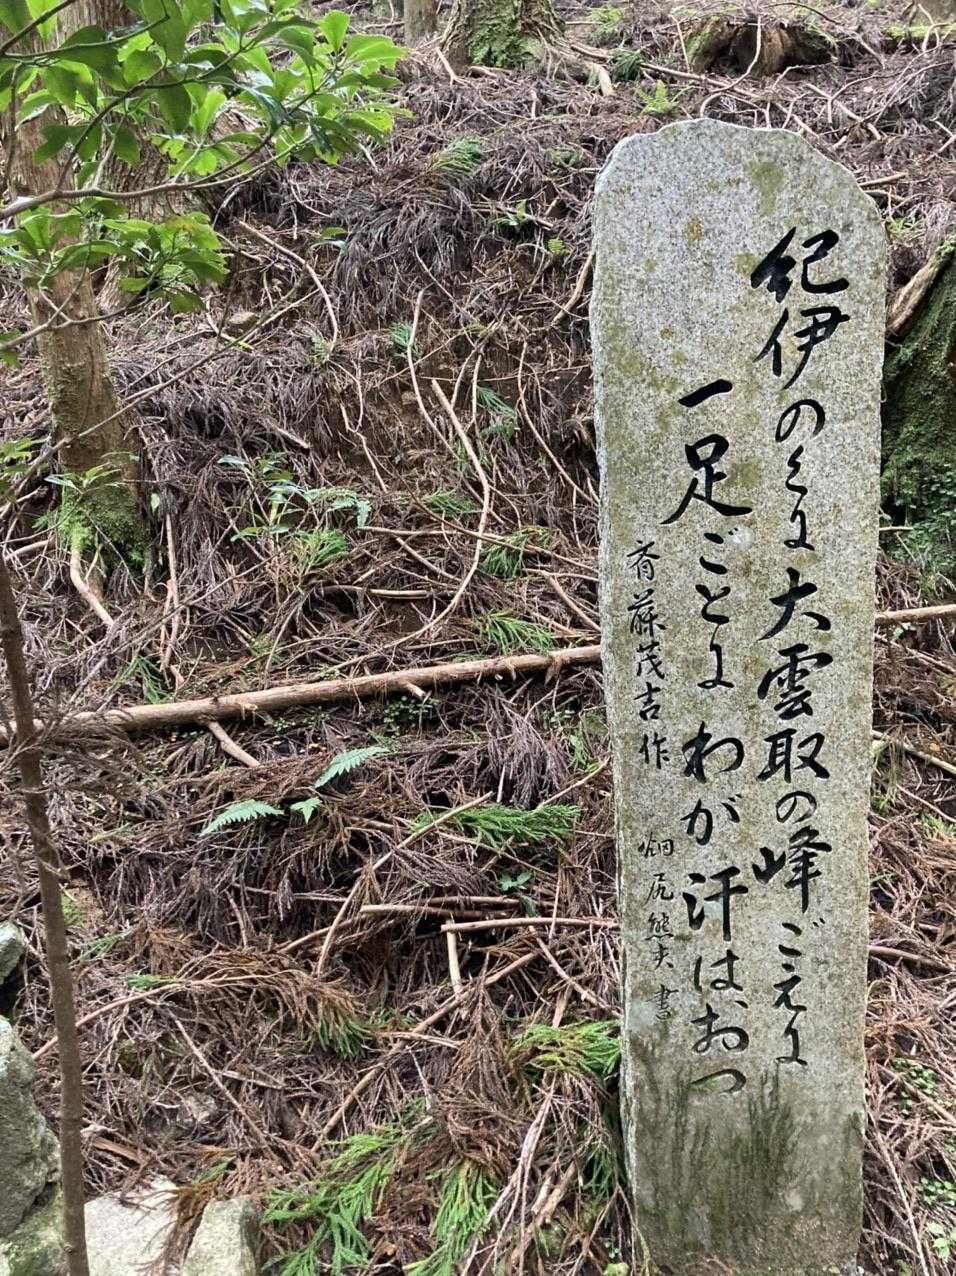 紀伊のくに大雲取の峰ごえに
一足ごとにわが汗はおつ
斉藤茂吉作 畑尻熊夫 書